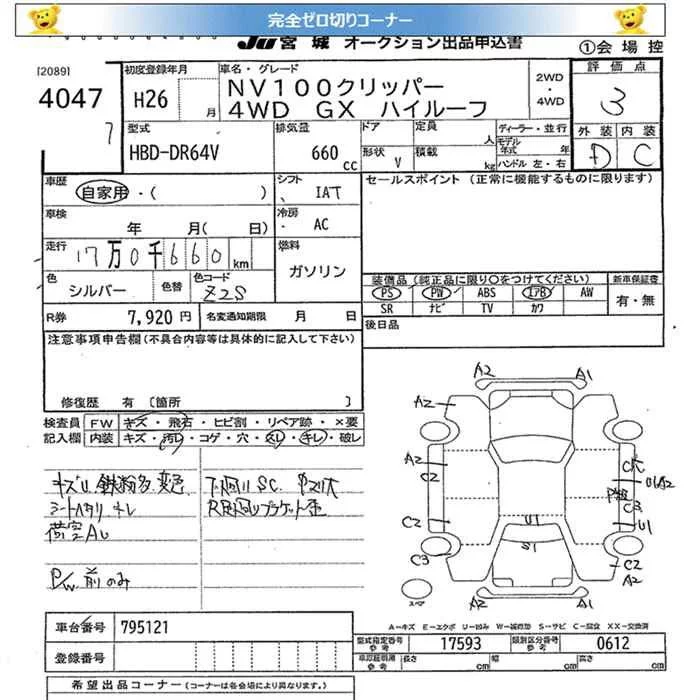 完全ゼロ切りコーナー
JU 宮城 オークション出品申込書
①会場控
[2089]
4047
7
初度登録年月
H26 月
車名・グレード
NV100クリッパー
4WD GX ハイルーフ
2WD
・
4WD
評価点
3
型式
HBD-DR64V
排気量
660 cc
ドア
定員 人
形状 V
積載 kg
ディーラー・並行
モデル年式 年
ハンドル 左・右
外装 内装
D C
車歴
自家用・( )
シフト
IAT
セールスポイント (正常に機能するものに限ります)
車検
年 月( 日)
冷房
AC
走行
17万0千660km
燃料
ガソリン
色
シルバー
色替
色コード
Z2S
装備品 (純正品に限り○をつけてください)
新車保証書
PS PW ABS エアB AW
有・無
SR ナビ TV カワ
R券 7,920 円
名変通知期限 月 日
後日品
注意事項申告欄(不具合内容等は具体的に記入して下さい)
修復歴 有 [箇所 ]
検査員 FW キズ・飛石・ヒビ割・リペア跡・×要
記入欄 内装 キズ・汚レ・コゲ・穴・スレ・キレ・破レ
キズU 鉄粉多 変色
シートヘタリ キレ
荷室AU
P/W 前のみ
下廻り SC
A2 A1
A2
A2
C2
C2
C3
U1
S1
U1A2
C3
U1
C2
A2
A2 A1
スペア
A−キズ E−エクボ U−凹み W−補修跡 S−サビ C−腐食 XX−交換済
車台番号 795121
型式指定番号 参考 17593
類別区分番号 参考 0612
登録番号
車原証明用 参考 長さ cm 幅 cm 高さ cm
希望出品コーナー (コーナーは各会場により異なります。)